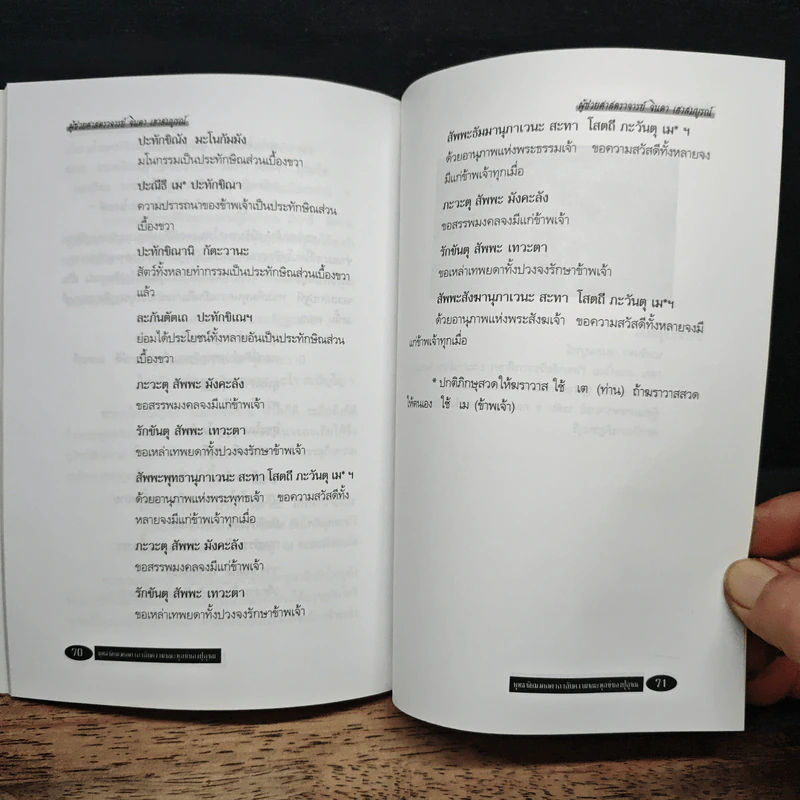 ผู้ช่วยศาสตราจารย์ จินดา เฮงสมบูรณ์
ปะทักขิณัง มะโนกัมมัง
มโนกรรมเป็นประทักษิณส่วนเบื้องขวา
ปะณิธี เม* ปะทักขิณา
ความปรารถนาของข้าพเจ้าเป็นประทักษิณส่วน
เบื้องขวา
ปะทักขิณานิ กัตะวานะ
สัตว์ทั้งหลายทำกรรมเป็นประทักษิณส่วนเบื้องขวา
แล้ว
ละภันตัตเถ ปะทักขิเณฯ
ย่อมได้ประโยชน์ทั้งหลายอันเป็นประทักษิณส่วน
เบื้องขวา
ภะวะตุ สัพพะ มังคะลัง
ขอสรรพมงคลจงมีแก่ข้าพเจ้า
รักขันตุ สัพพะ เทวะตา
ขอเหล่าเทพยดาทั้งปวงจงรักษาข้าพเจ้า
สัพพะพุทธานุภาเวนะ สะทา โสตถี ภะวันตุ เม* ฯ
ด้วยอานุภาพแห่งพระพุทธเจ้า ขอความสวัสดีทั้ง
หลายจงมีแก่ข้าพเจ้าทุกเมื่อ
ภะวะตุ สัพพะ มังคะลัง
ขอสรรพมงคลจงมีแก่ข้าพเจ้า
รักขันตุ สัพพะ เทวะตา
ขอเหล่าเทพยดาทั้งปวงจงรักษาข้าพเจ้า
70
ผู้ช่วยศาสตราจารย์ จินดา เฮงสมบูรณ์
สัพพะธัมมานุภาเวนะ สะทา โสตถี ภะวันตุ เม* ฯ
ด้วยอานุภาพแห่งพระธรรมเจ้า ขอความสวัสดีทั้งหลายจง
มีแก่ข้าพเจ้าทุกเมื่อ
ภะวะตุ สัพพะ มังคะลัง
ขอสรรพมงคลจงมีแก่ข้าพเจ้า
รักขันตุ สัพพะ เทวตา
ขอเหล่าเทพยดาทั้งปวงจงรักษาข้าพเจ้า
สัพพะสังฆานุภาเวนะ สะทา โสตถี ภะวันตุ เม*ฯ
ด้วยอานุภาพแห่งพระสังฆเจ้า ขอความสวัสดีทั้งหลายจงมี
แก่ข้าพเจ้าทุกเมื่อ
* ปกติภิกษุสวดให้ฆราวาส ใช้ เต (ท่าน) ถ้าฆราวาสสวด
ให้ตนเอง ใช้ เม (ข้าพเจ้า)
71